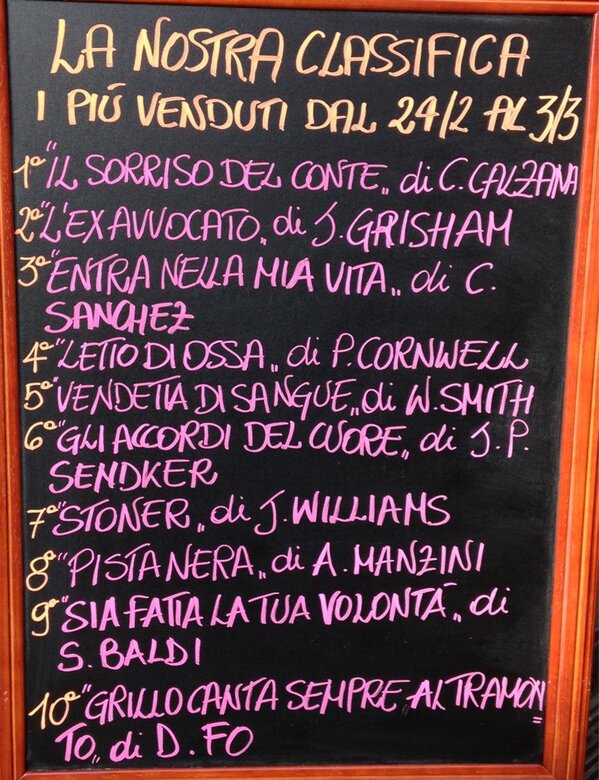 LA NOSTRA CLASSIFICA
I PIÚ VENDUTI DAL 24/2 AL 3/3
1° "IL SORRISO DEL CONTE„ di C. CALZANA
2° "L'EX AVVOCATO„ di J. GRISHAM
3° "ENTRA NELLA MIA VITA„ di C.
SANCHEZ
4° "LETTO DI OSSA„ di P. CORNWELL
5° "VENDETTA DI SANGUE„ di W. SMITH
6° "GLI ACCORDI DEL CUORE„ di J.P.
SENDKER
7° "STONER„ di J. WILLIAMS
8° "PISTA NERA„ di A. MANZINI
9° "SIA FATTA LA TUA VOLONTÁ„ di
S. BALDI
10° "GRILLO CANTA SEMPRE AL TRAMON=
TO„ di D. FO